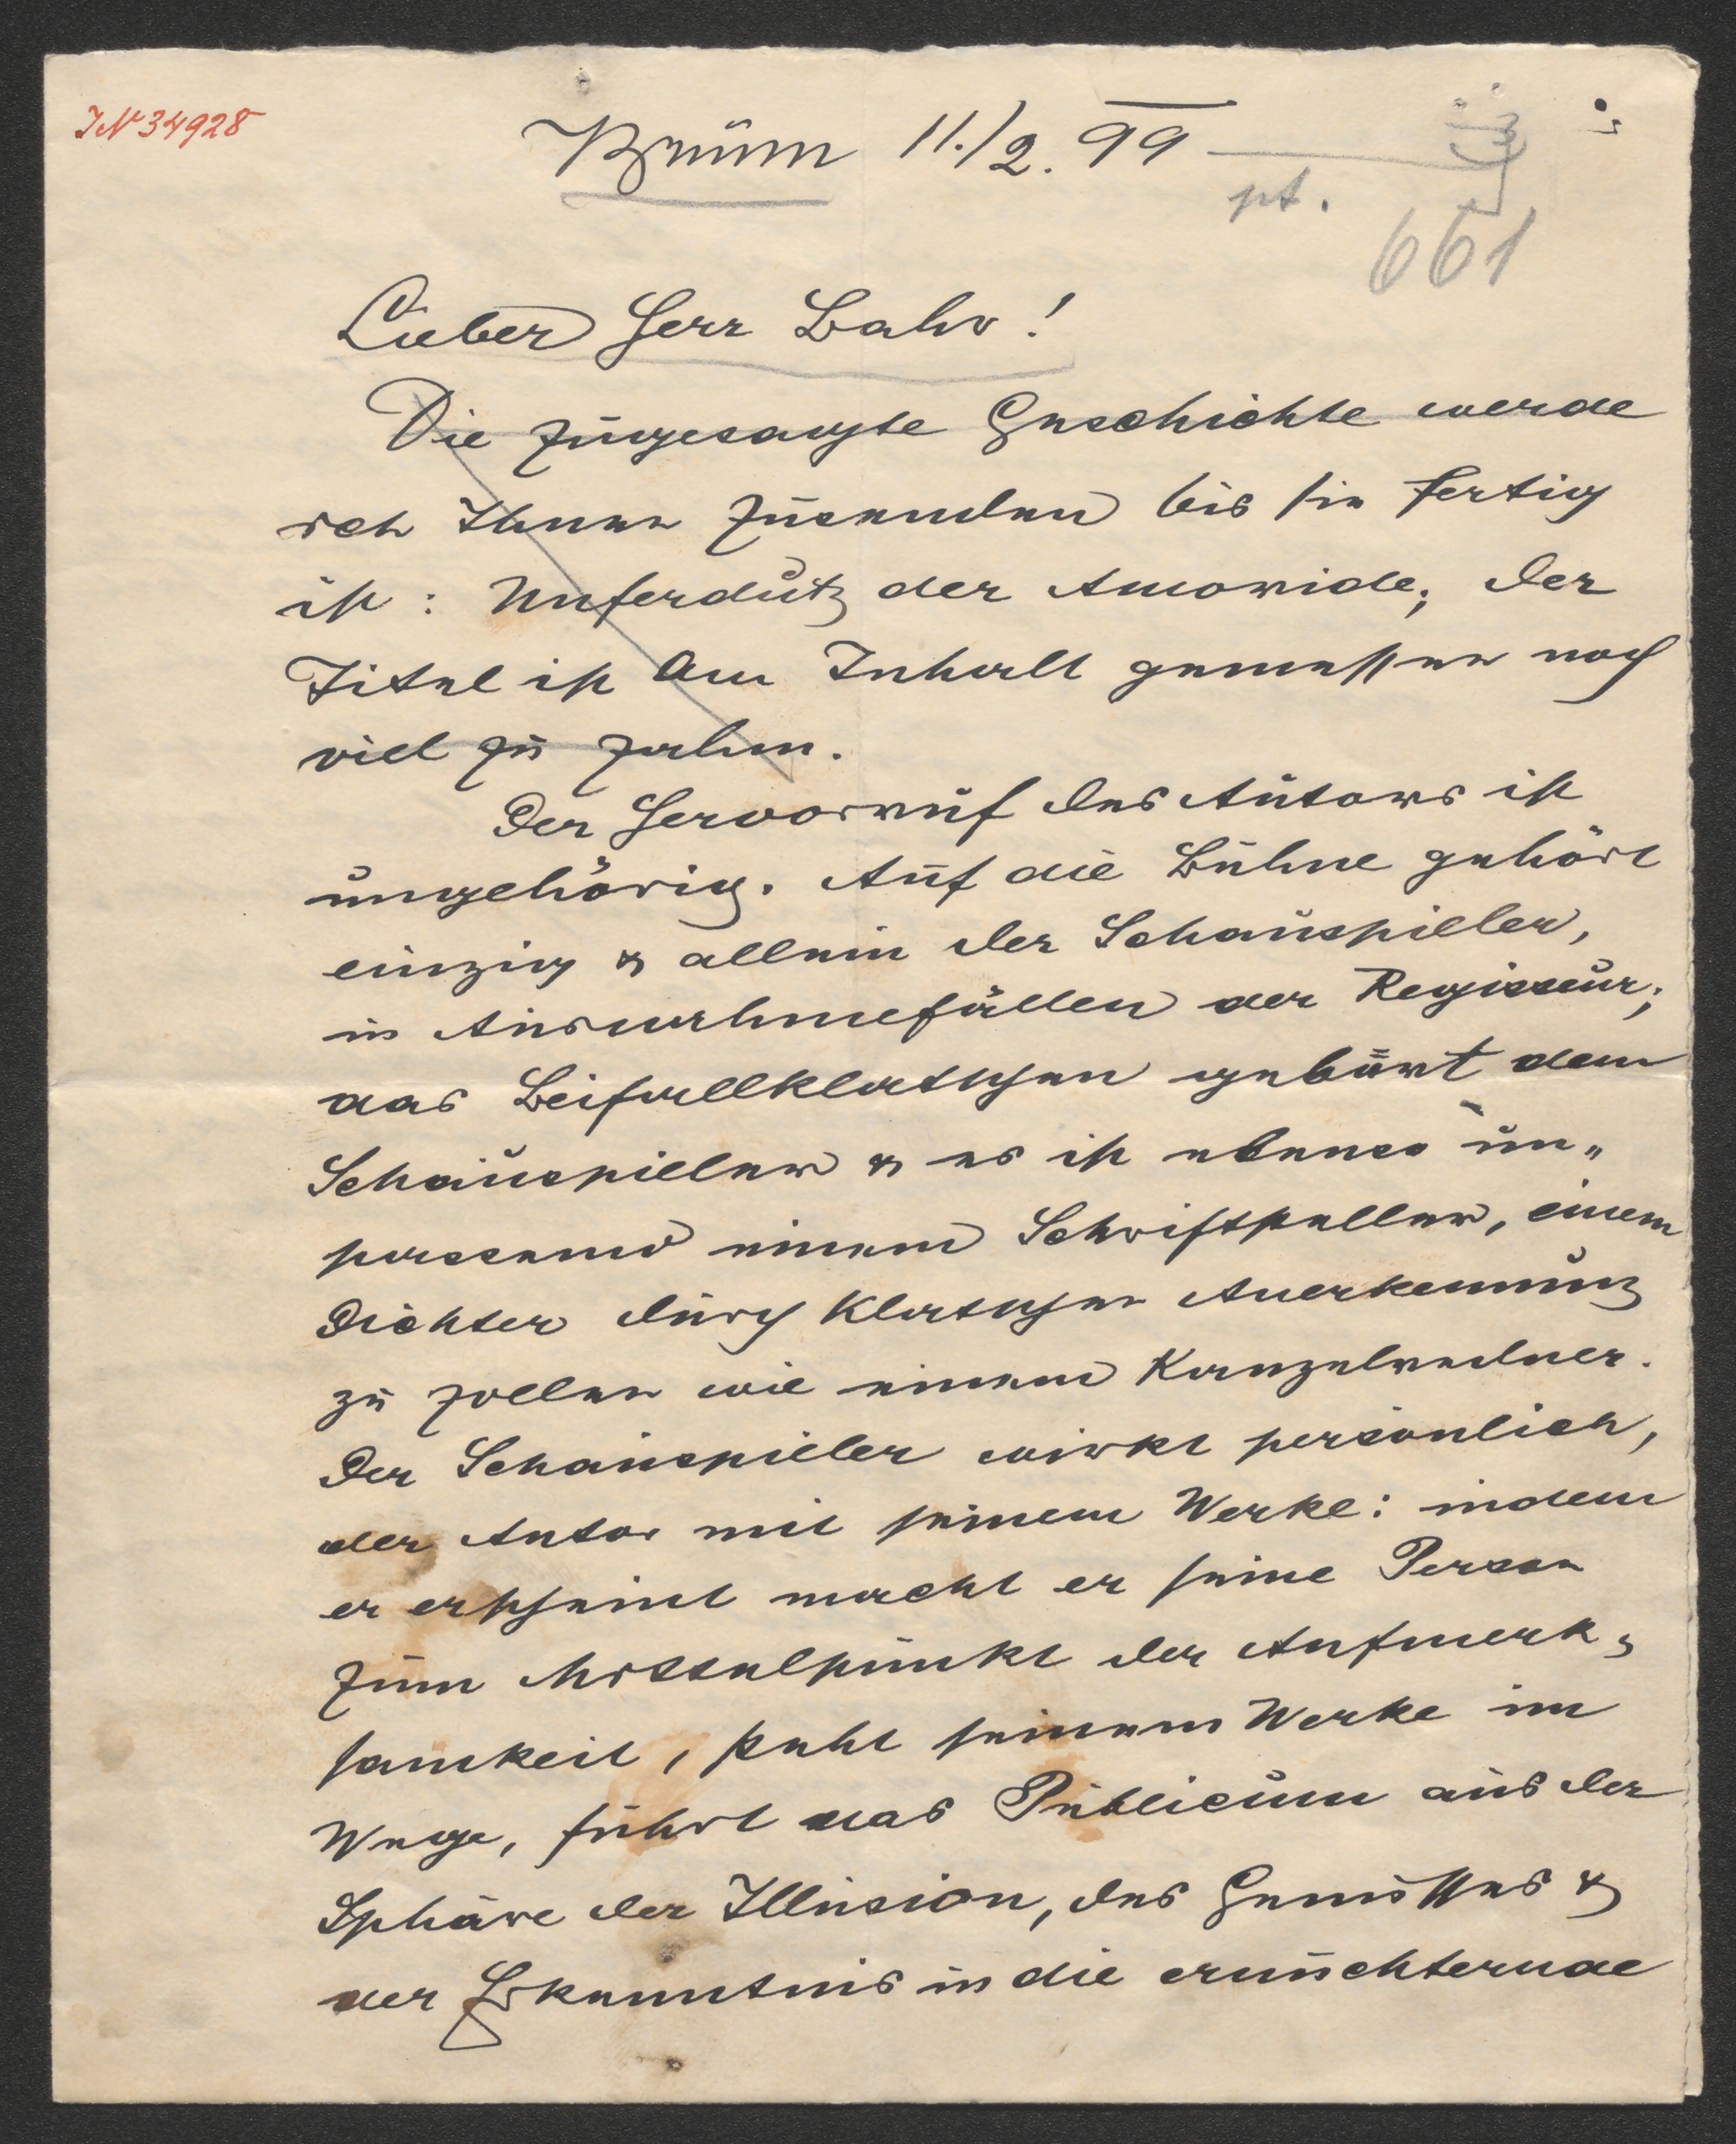 IN 34928
Brünn 11./2. 99
pt.
661
Lieber Herr Bahr!
Die zugesagte Geschichte werde
ich Ihnen zusenden bis sie fertig
ist: der Amoride; der
Titel ist am Inhalt gemessen noch
viel zu zahm.
Der Hervorruf des Autors ist
ungehörig. Auf die Bühne gehört
einzig & allein der Schauspieler,
in Ausnahmefällen der Regisseur;
das Beifallklatschen gebürt dem
Schauspieler & es ist ebenso un„
passend einem Schriftsteller, einem
Dichter durch Klatschen Anerkennung
zu zollen wie einem Kanzelredner.
Der Schauspieler wirkt persönlich,
der Autor mit seinem Werke: indem
er erscheint macht er seine Person
zum Mittelpunkt der Aufmerk„
samkeit, steht seinem Werke im
Wege, führt das Publicum aus der
Sphäre der Illusion, des Genusses &
der Erkenntnis in die ernüchternde